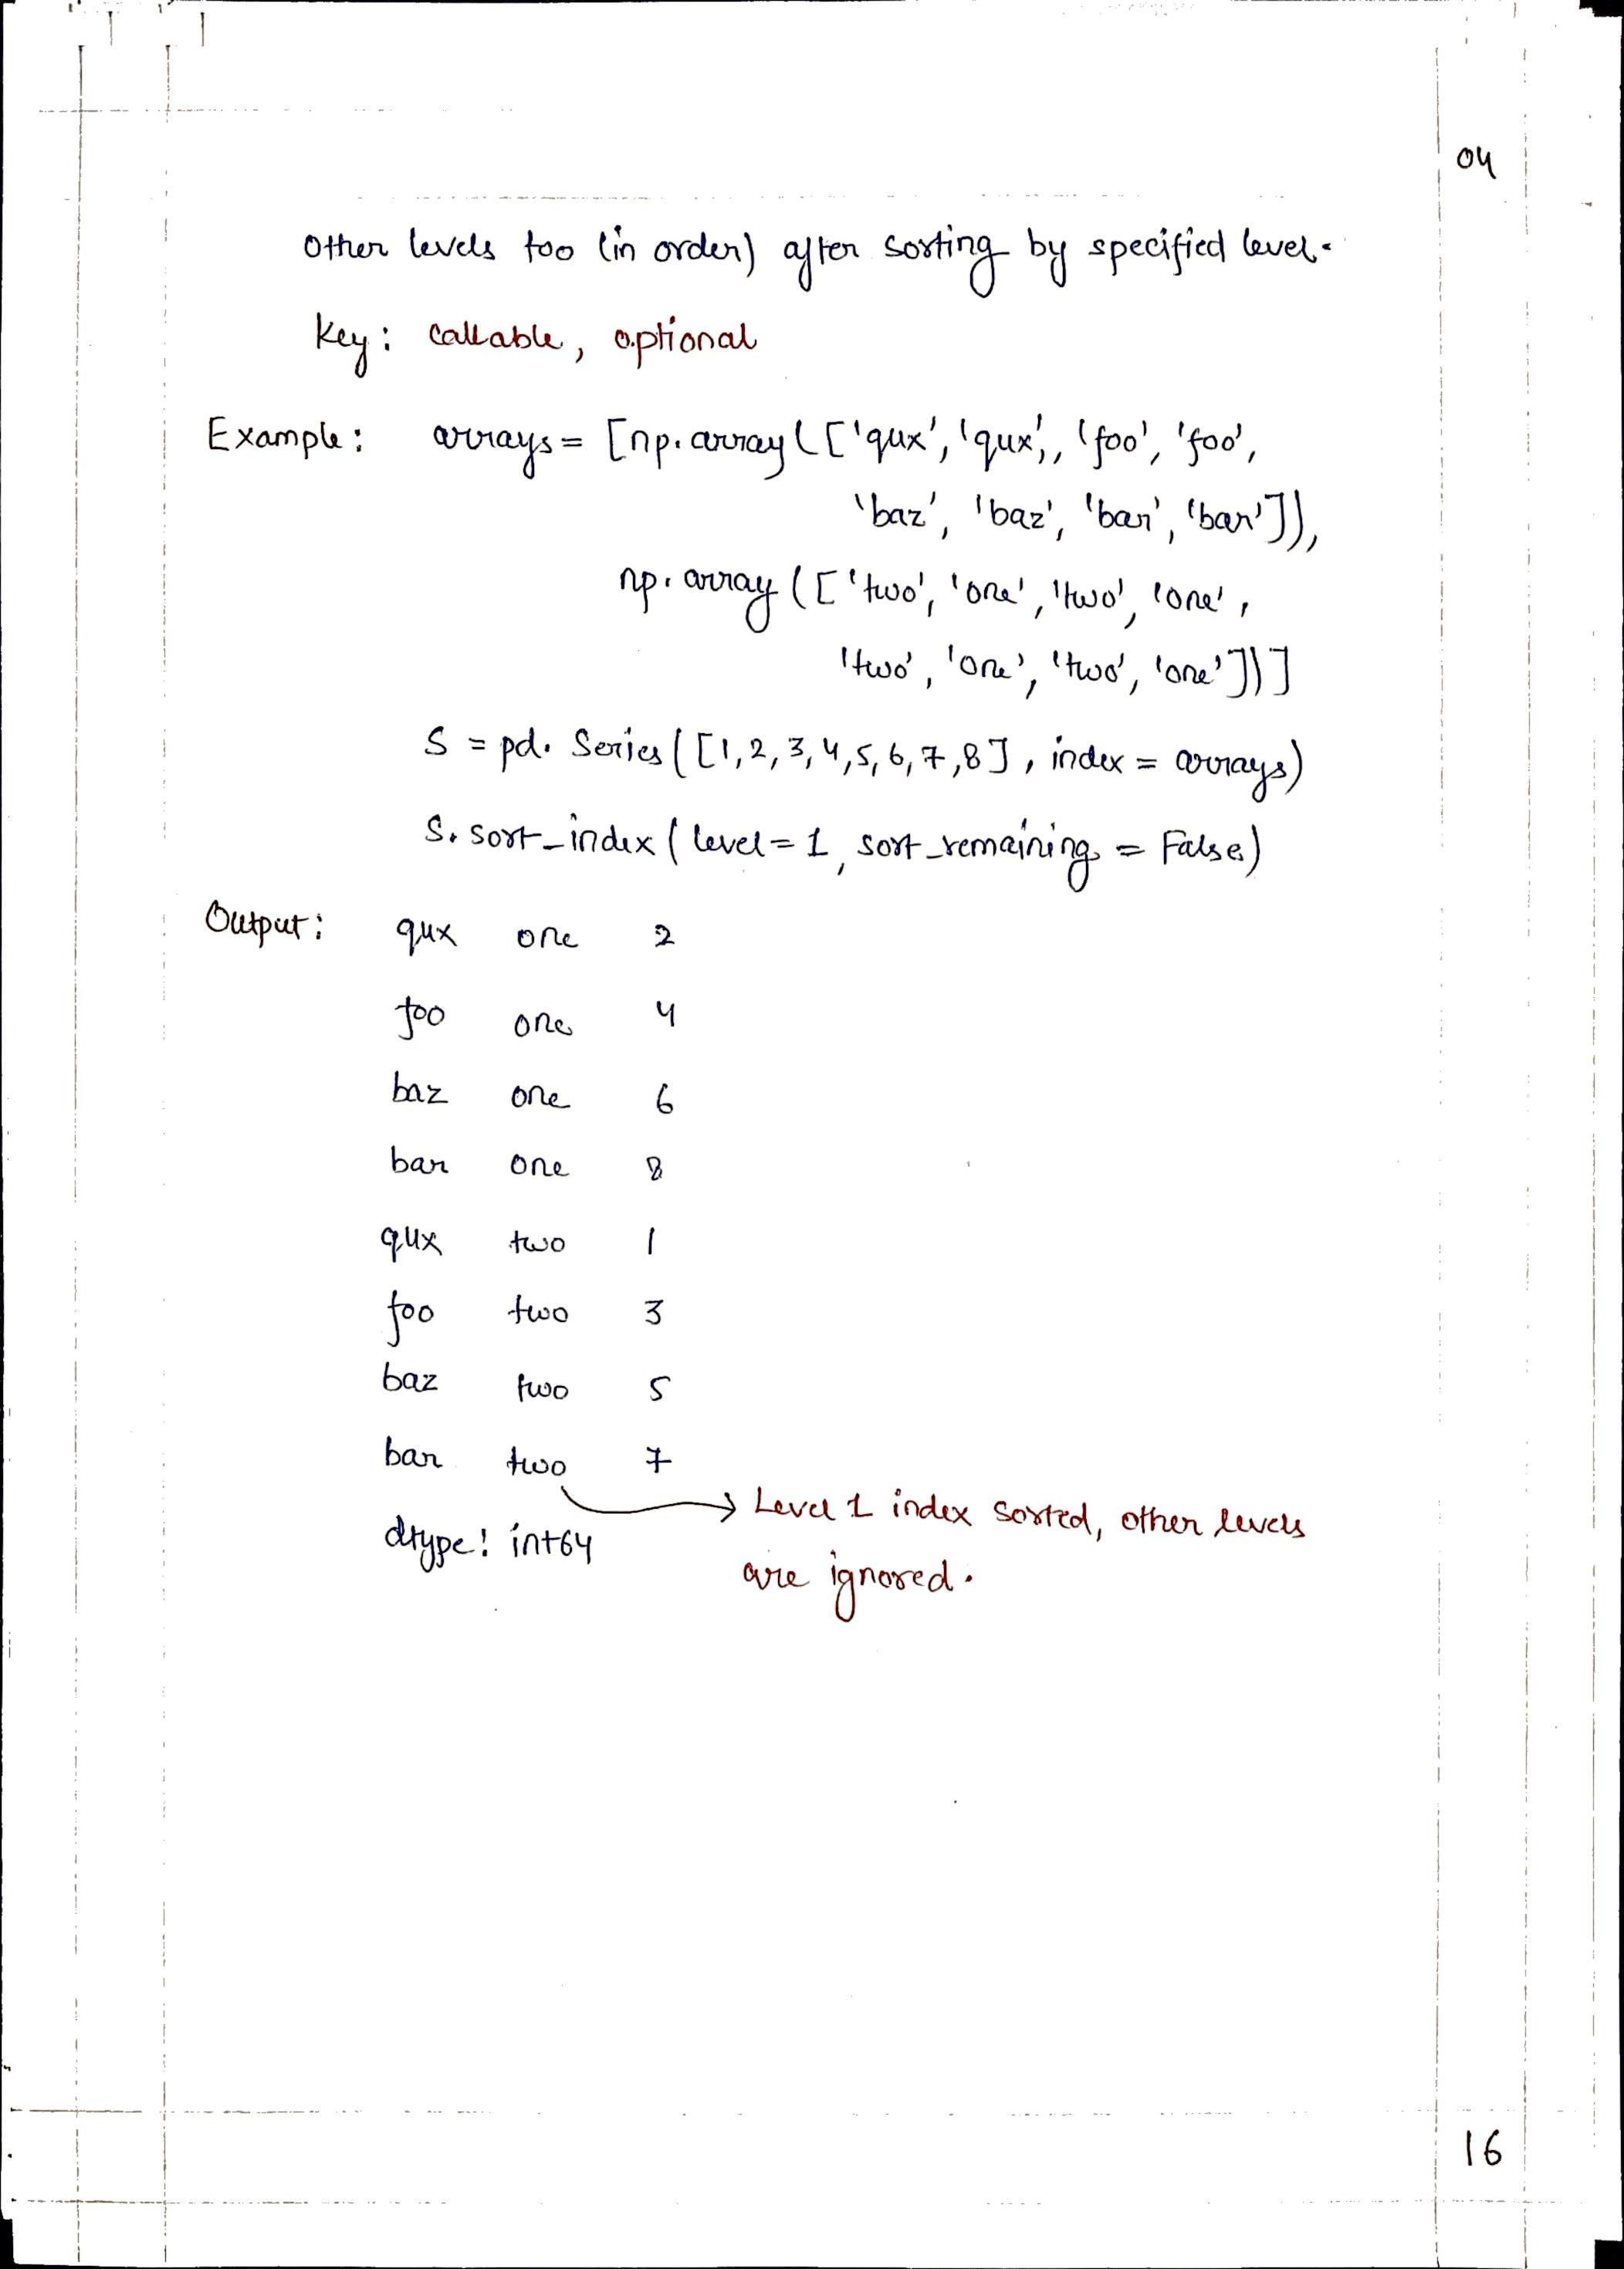 04
other levels too (in order) after sorting by specified level.
key: callable, optional
Example: arrays = [np.array(['qux', 'qux', 'foo', 'foo',
'baz', 'baz', 'bar', 'bar']),
np.array(['two', 'one', 'two', 'one',
'two', 'one', 'two', 'one'])]
S = pd. Series([1,2,3,4,5,6,7,8], index = arrays)
S. sort_index(level=1, sort_remaining = False)
Output: qux one 2
foo one 4
baz one 6
bar one 8
qux two 1
foo two 3
baz two 5
bar two 7
→ Level 1 index sorted, other levels
dtype: int64
are ignored.
16